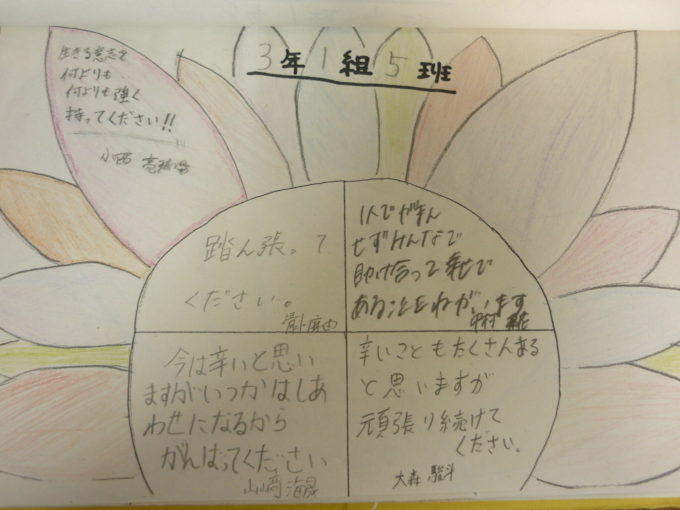 3年1組5班
生きる意志を
何よりも
何よりも強く
持ってください!!
小西
踏ん張って
ください。
1人でがまん
せずみんなで
助け合って幸せで
あることをねがいます
中村
今は辛いと思い
ますがいつかはしあ
わせになるから
がんばってください
山崎 海晟
辛いこともたくさんある
と思いますが
頑張り続けて
ください。
大森 駿斗